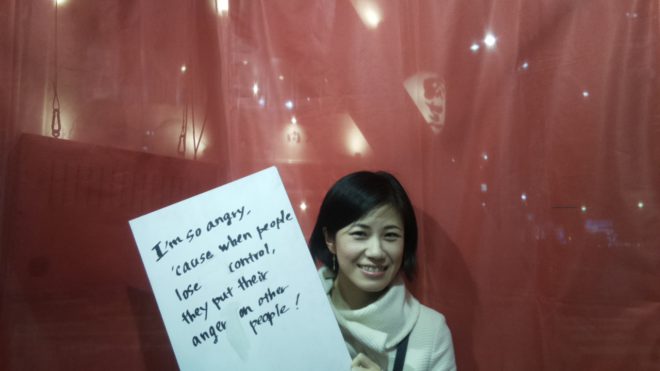 I'm so angry,
'cause when people
lose control,
they put their
anger on other
people!